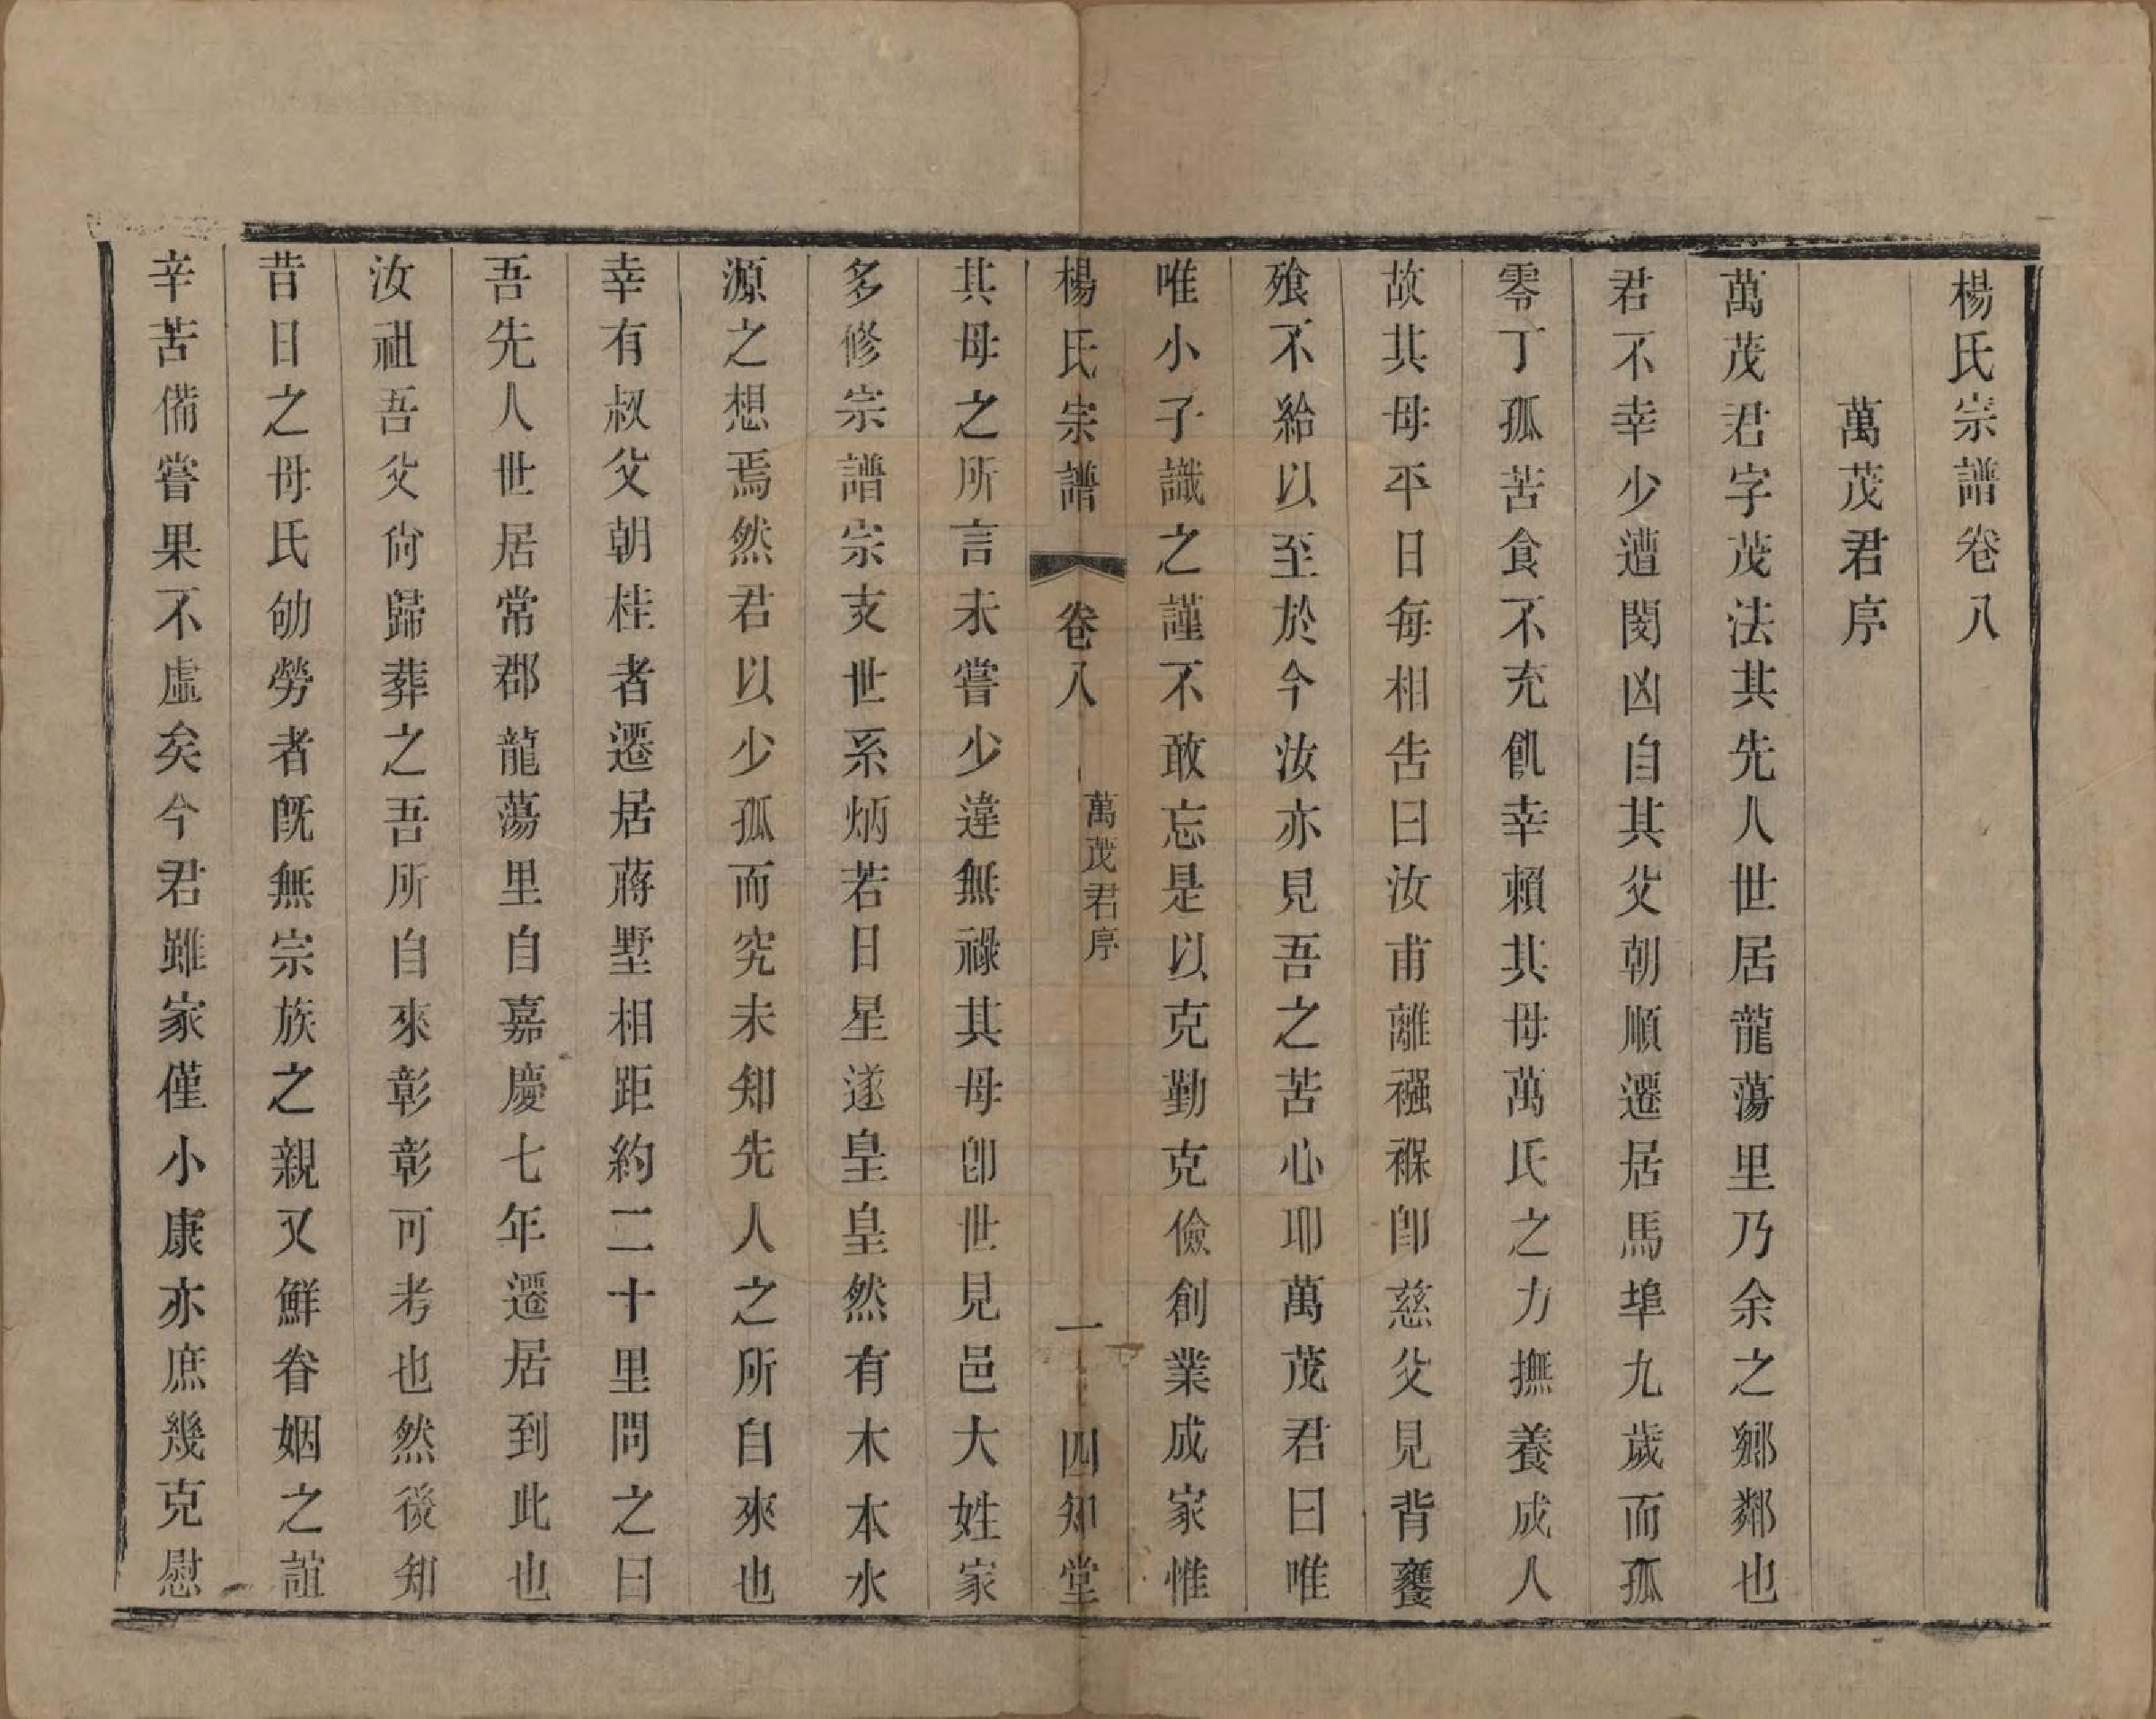 楊氏宗譜卷八
萬茂君序
萬茂君字茂法其先人世居龍蕩里乃余之鄉鄰也
君不幸少遭閔凶自其父朝順遷居馬埠九歲而孤
零丁孤苦食不充飢幸賴其母萬氏之力撫養成人
故其母平日每相吿曰汝甫離襁褓卽慈父見背饔
飱不給以至於今汝亦見吾之苦心耶萬茂君曰唯
唯小子識之謹不敢忘是以克勤克儉創業成家惟
楊氏宗譜 卷八 萬茂君序 一 四知堂
其母之所言未嘗少違無祿其母卽世見邑大姓家
多修宗譜宗支世系炳若日星遂皇皇然有木本水
源之想焉然君以少孤而究未知先人之所自來也
幸有叔父朝桂者遷居蔣墅相距約二十里問之曰
吾先人世居常郡龍蕩里自嘉慶七年遷居到此也
汝祖吾父尙歸葬之吾所自來彰彰可考也然後知
昔日之母氏劬勞者旣無宗族之親又鮮眷姻之誼
辛苦備嘗果不虛矣今君雖家僅小康亦庶幾克慰